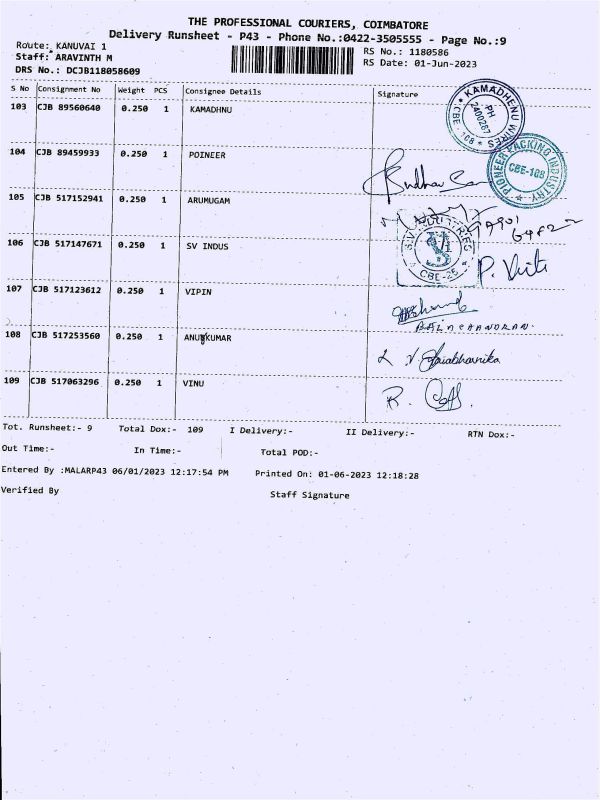 THE PROFESSIONAL COURIERS, COIMBATORE
Delivery Runsheet - P43 - Phone No.:0422-3505555 - Page No.:9
Route: KANUVAI 1
RS No.: 1180586
Staff: ARAVINTH M
RS Date: 01-Jun-2023
DRS No.: DCJB118058609
S No Consignment No Weight PCS Consignee Details Signature
103 CJB 89560640 0.250 1 KAMADHNU
KAMADHENU WIRES PH 2400287 CBE - 108
104 CJB 89459933 0.250 1 POINEER
PIONEER PACKING INDUSTRY CBE-108
105 CJB 517152941 0.250 1 ARUMUGAM
106 CJB 517147671 0.250 1 SV INDUS
CBE-25
107 CJB 517123612 0.250 1 VIPIN
BALACHANDRAN.
108 CJB 517253560 0.250 1 ANUKUMAR
109 CJB 517063296 0.250 1 VINU
R.
Tot. Runsheet:- 9 Total Dox:- 109 I Delivery:- II Delivery:- RTN Dox:-
Out Time:- In Time:- Total POD:-
Entered By :MALARP43 06/01/2023 12:17:54 PM Printed On: 01-06-2023 12:18:28
Verified By Staff Signature